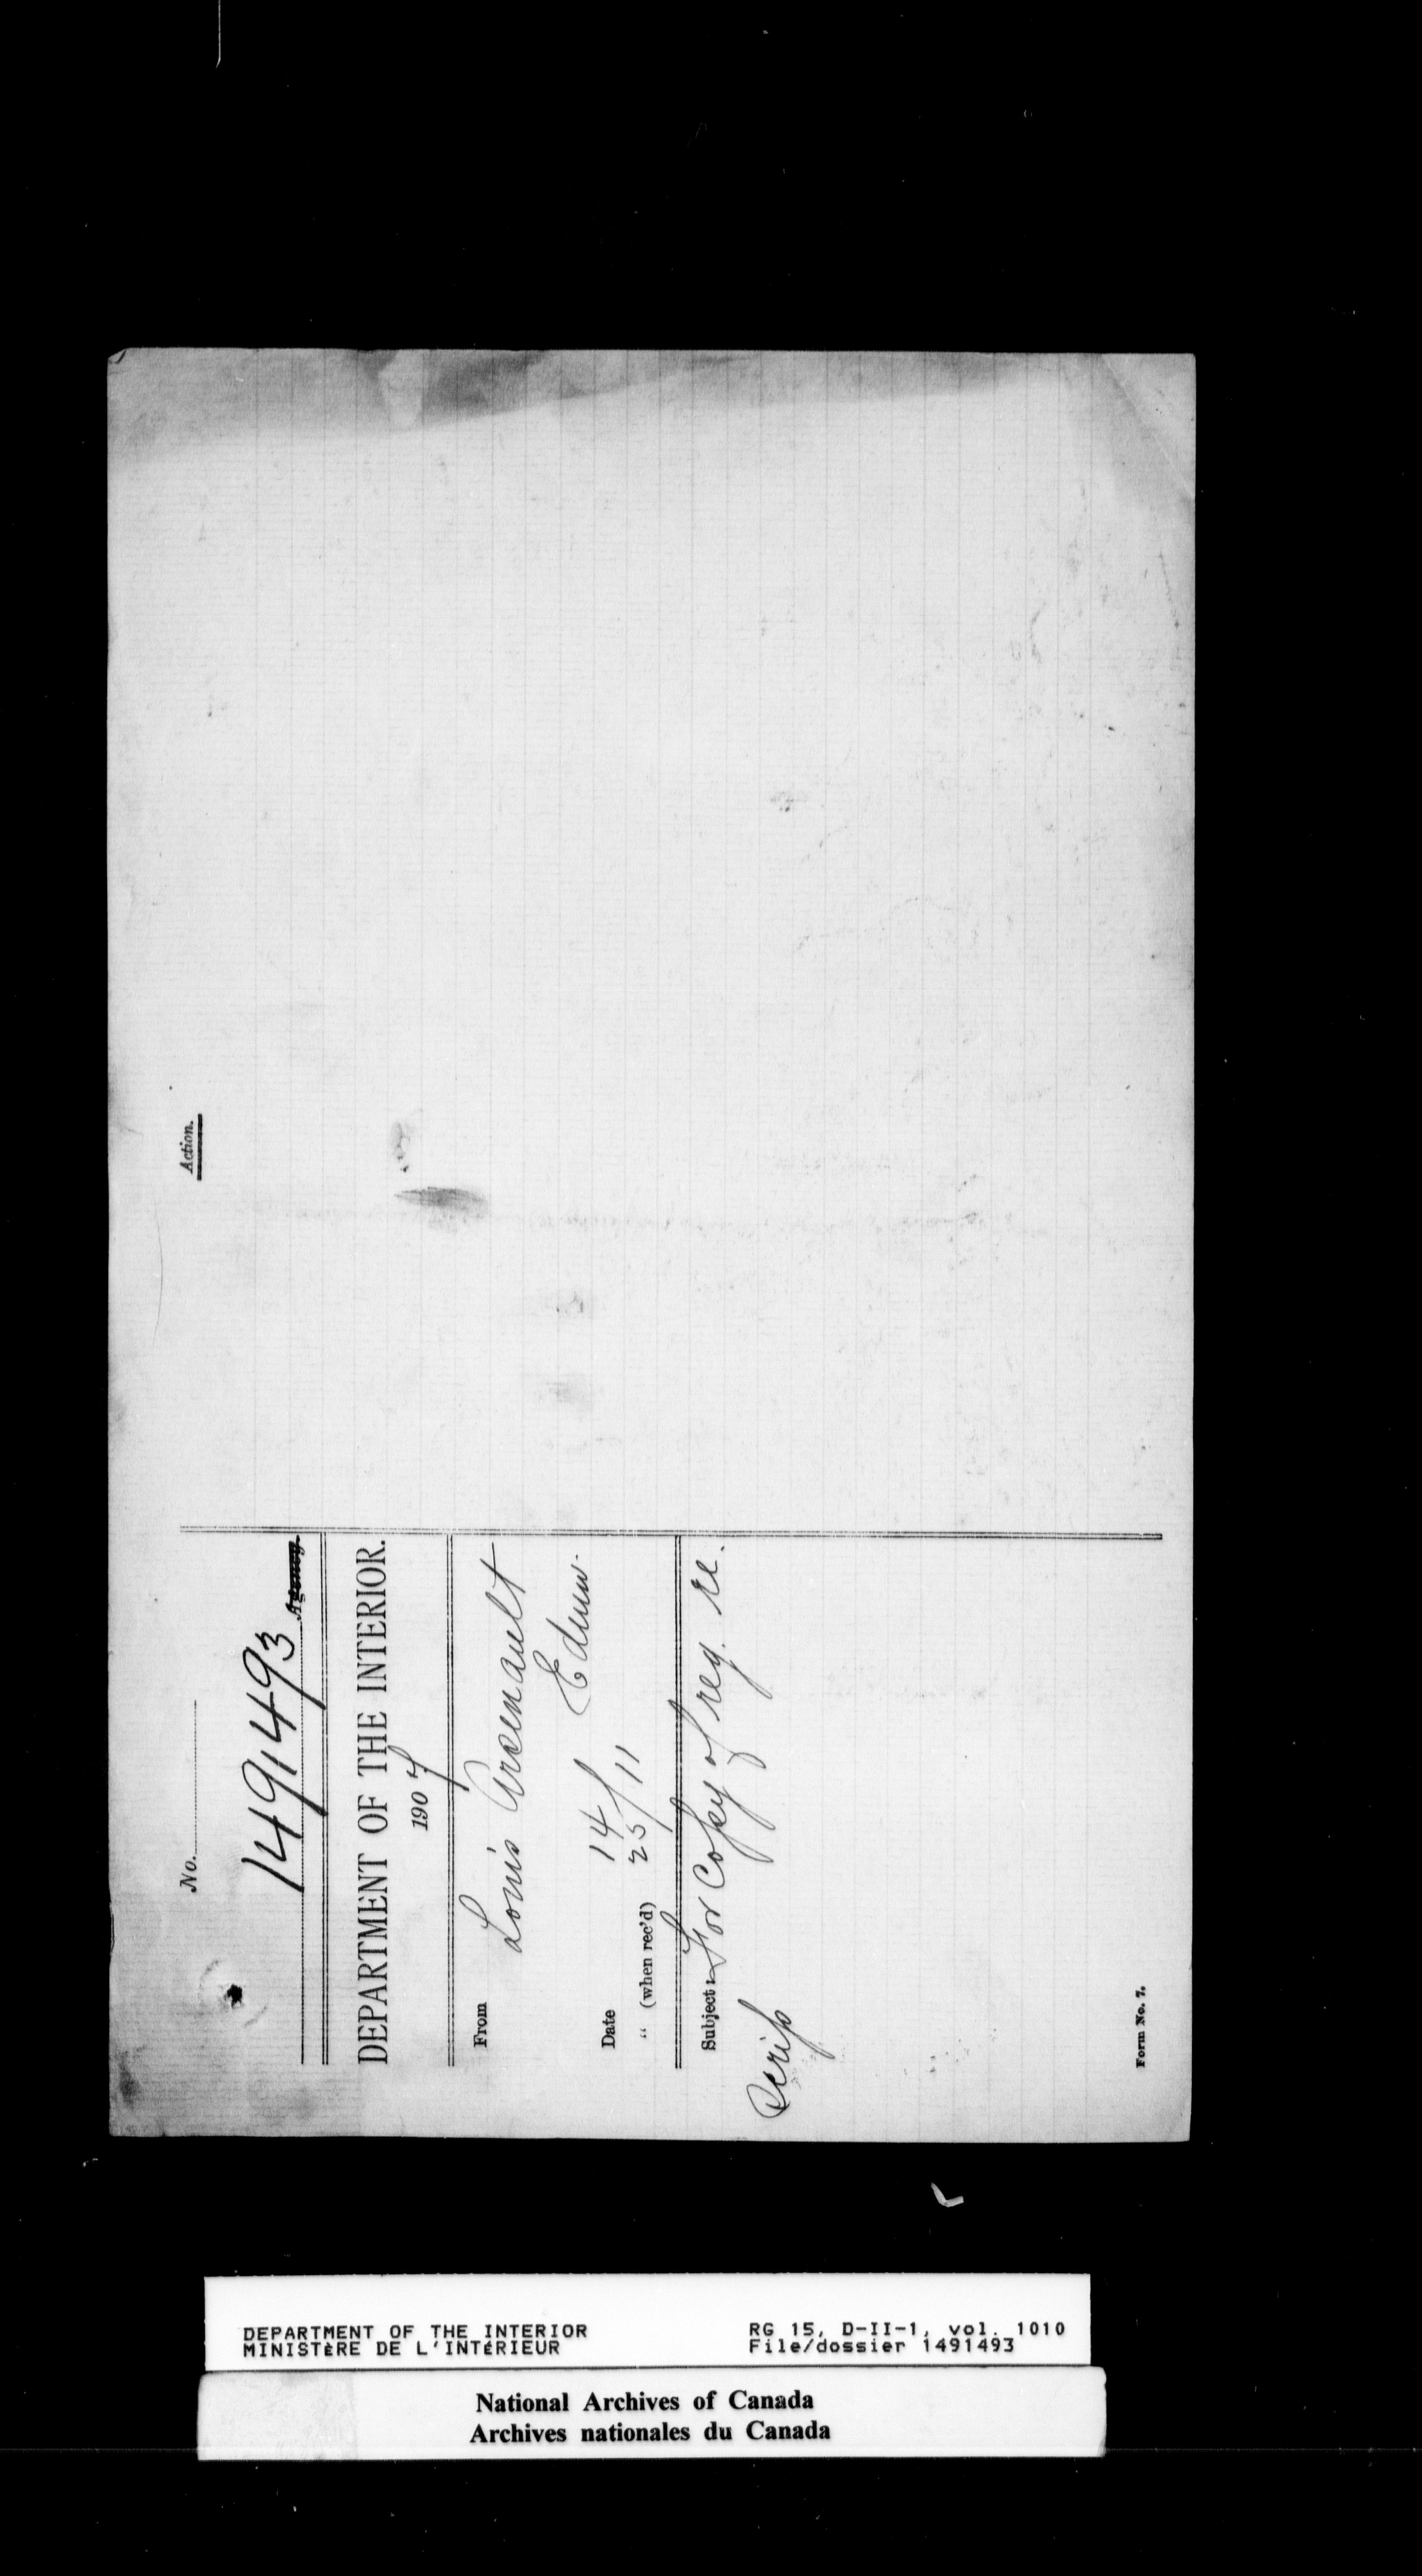 No.
1491493 Agency.
DEPARTMENT OF THE INTERIOR.
1907
From
Louis Arsenault
Edmn.
Date 14
" (when rec'd) 25/11
Subject: For Copy of reg. re.
Scrip
Form No. 7.
Action.
DEPARTMENT OF THE INTERIOR
MINISTÈRE DE L'INTÉRIEUR
RG 15, D-II-1, vol. 1010
File/dossier 1491493
National Archives of Canada
Archives nationales du Canada